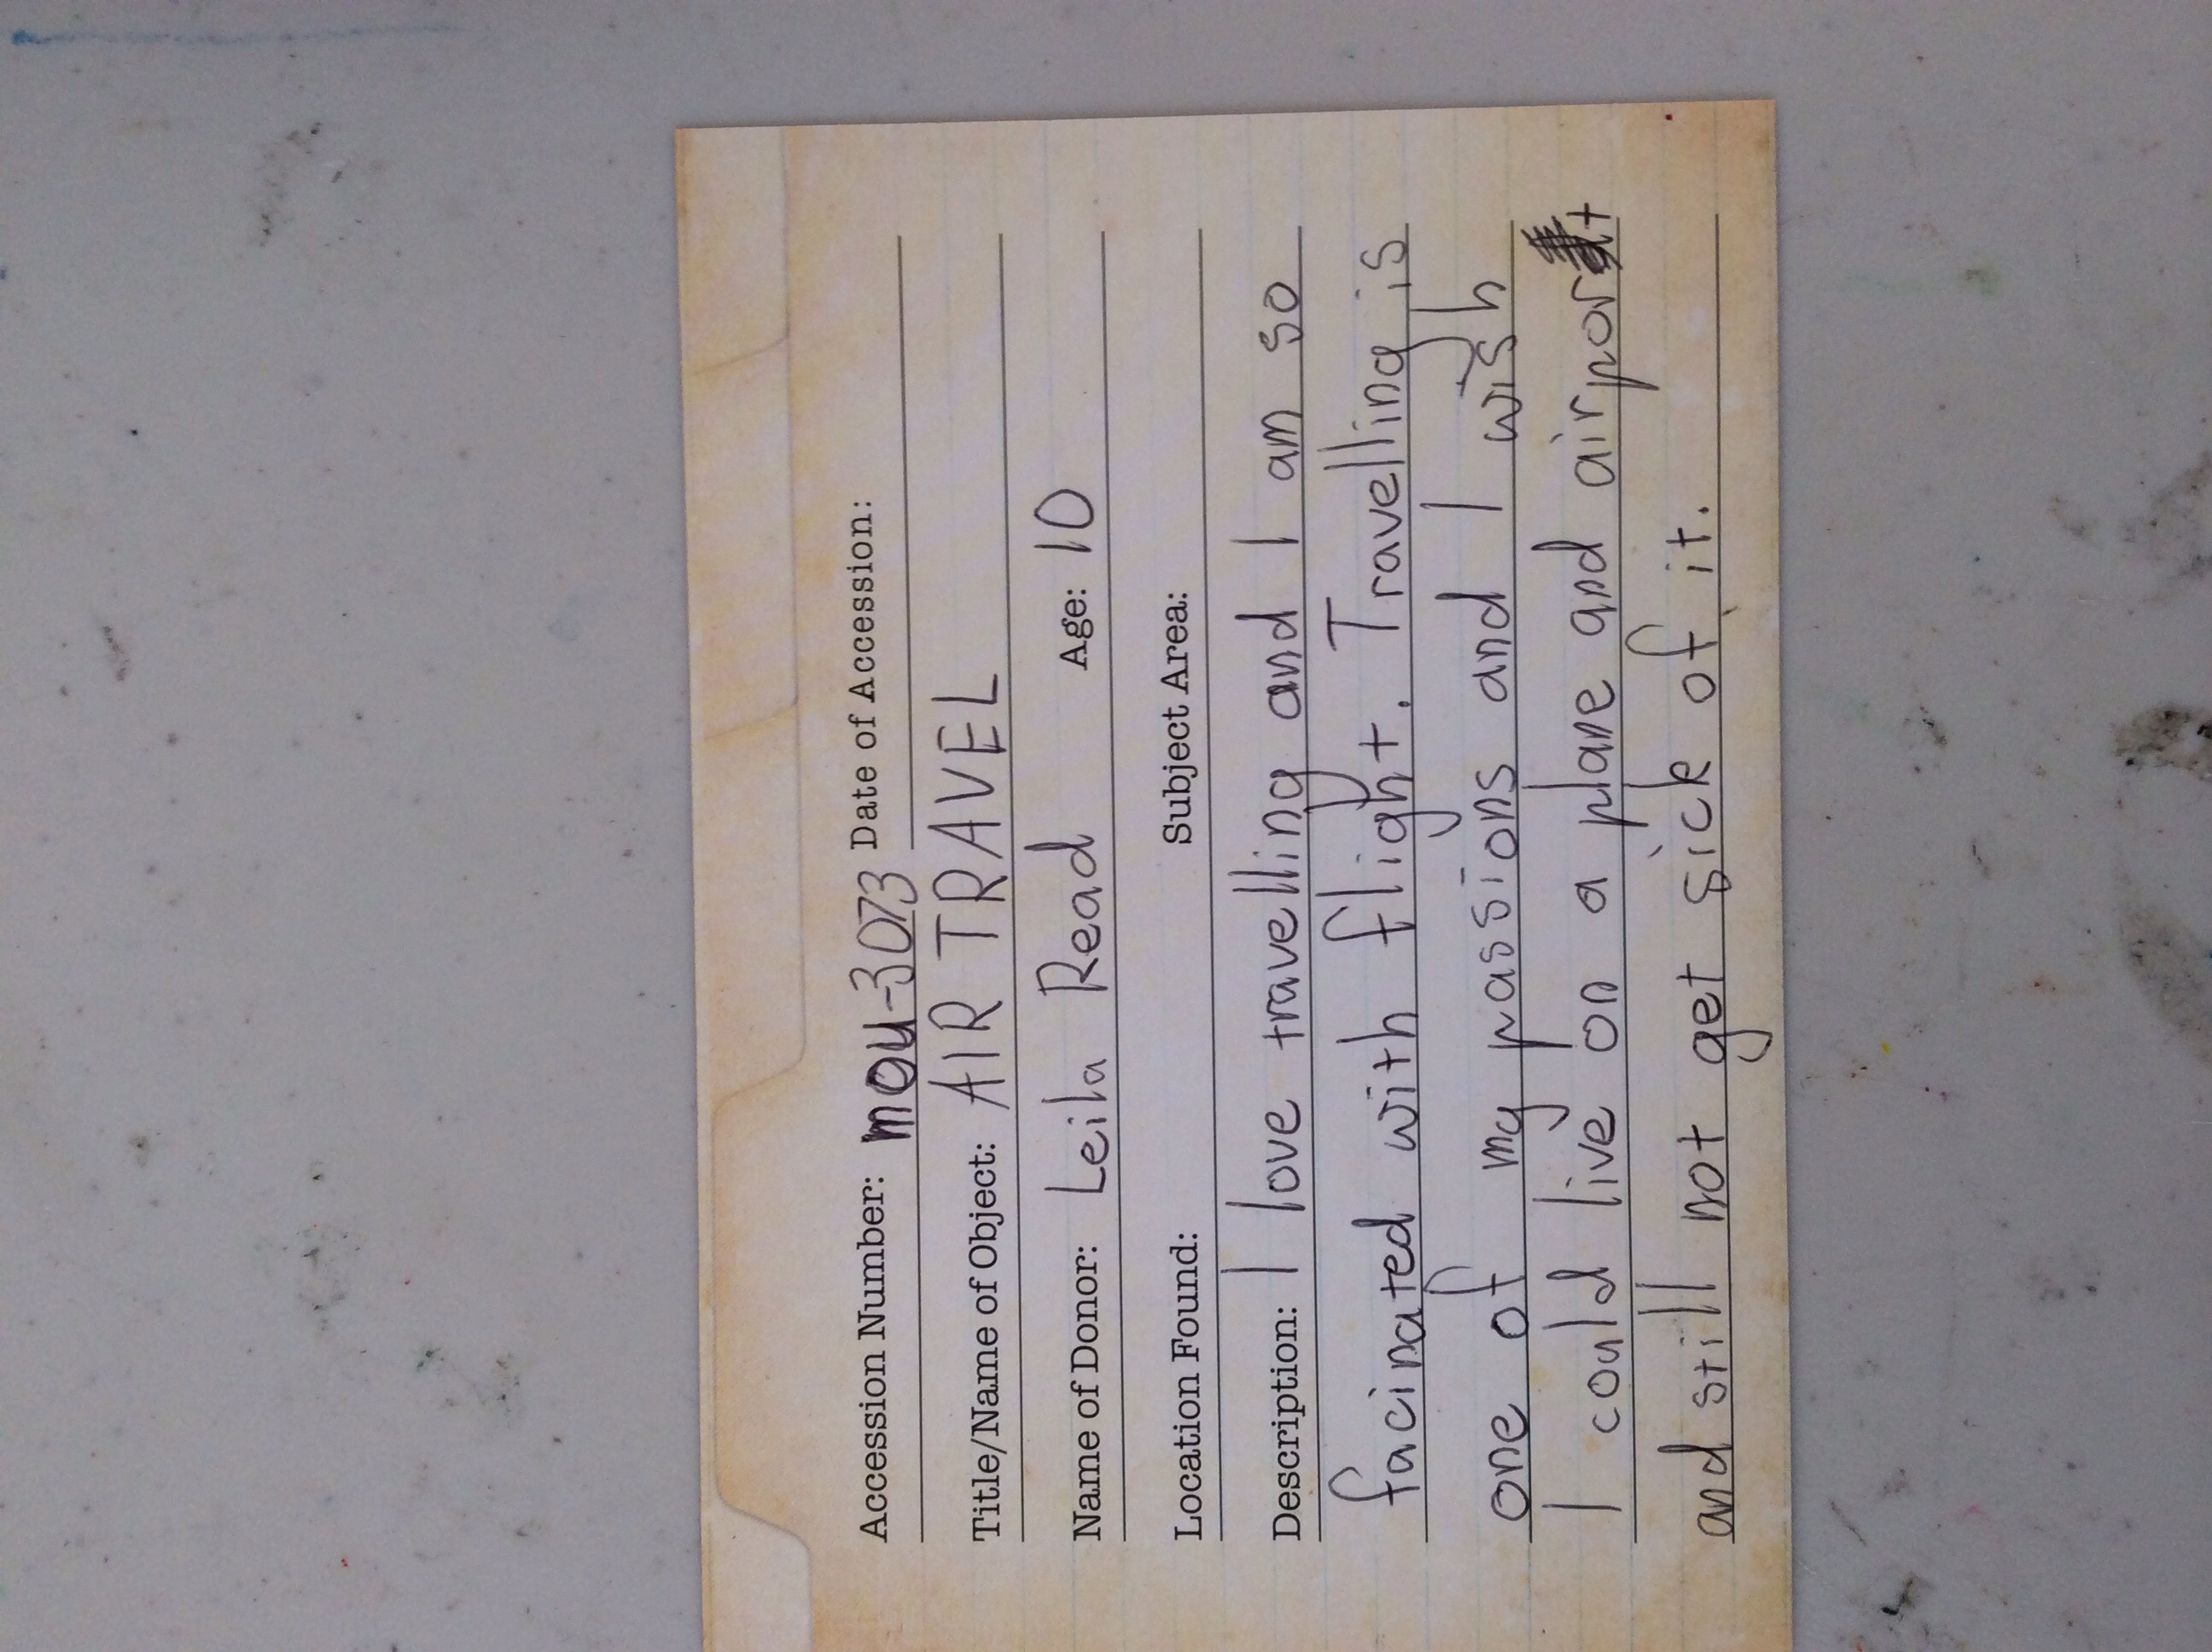 Accession Number: mou-3073 Date of Accession:
Title/Name of Object: AIR TRAVEL
Name of Donor: Leila Read Age: 10
Location Found: Subject Area:
Description: I love travelling and I am so
facinated with flight. Travelling is
one of my passions and I wish
I could live on a plane and airport
and still not get sick of it.